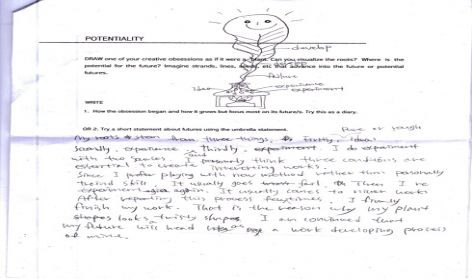 POTENTIALITY
develop
DRAW one of your creative obsessions as if it were a plant. Can you visualize the roots? Where is the
potential for the future? Imagine strands, lines, etc that advance into the future or potential
futures.
failure
Idea
experience
experiment
WRITE
1. How the obsession began and how it grows but focus most on its future/s. Try this as a diary.
OR 2: Try a short statement about futures using the umbrella statement.
My roots from three things, Firstly, idea
Secondly, experience Thirdly, experiment. I do experiment
with two I personally think three conditions are
essential to create interesting works.
Since I prefer playing with new method rather than personally
skill. It usually goes fail, Then I re
experiment again. It usually comes
After repeating this process few times, I firmly
finish my work. That is the reason why my plant
looks twisty shapes. I am convinced that
my future will head as a work developing process
of mine.